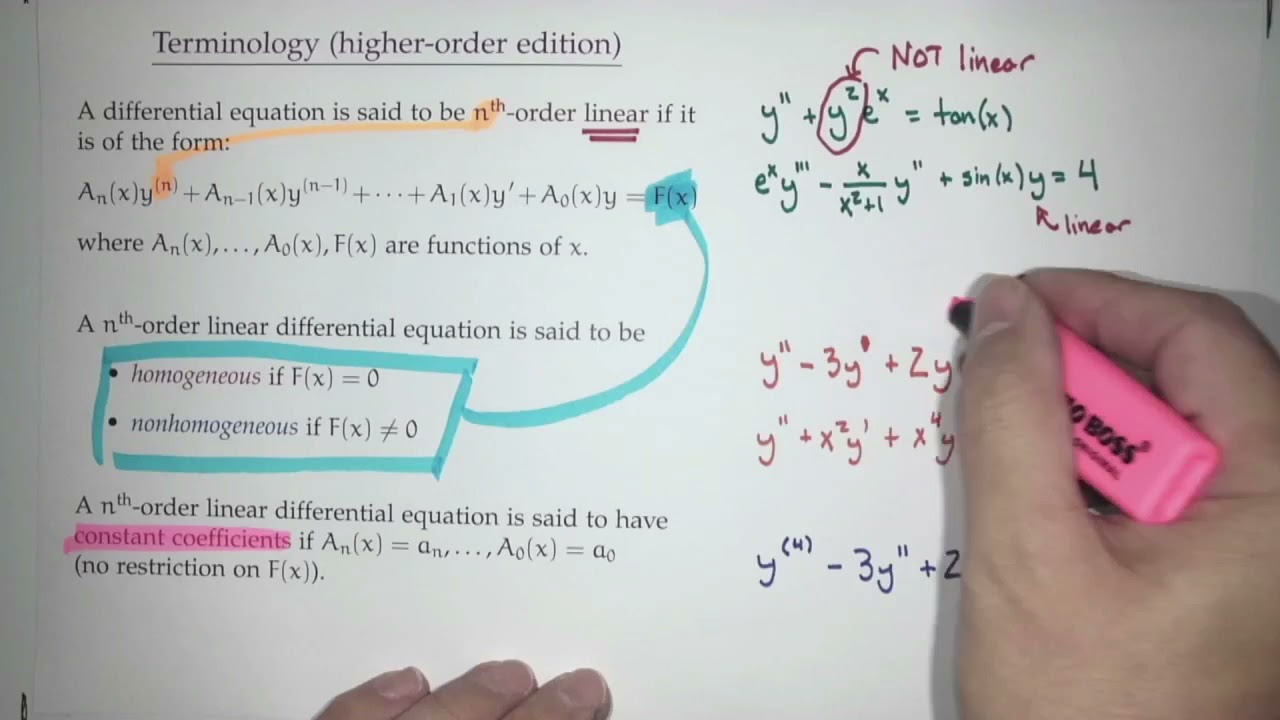 Terminology (higher-order edition)
A differential equation is said to be nth-order linear if it
is of the form:
Aₙ(x)y⁽ⁿ⁾ + Aₙ₋₁(x)y⁽ⁿ⁻¹⁾ + ··· + A₁(x)y′ + A₀(x)y = F(x)
where Aₙ(x), . . . , A₀(x), F(x) are functions of x.
A nth-order linear differential equation is said to be
• homogeneous if F(x) = 0
• nonhomogeneous if F(x) ≠ 0
A nth-order linear differential equation is said to have
constant coefficients if Aₙ(x) = aₙ, . . . , A₀(x) = a₀
(no restriction on F(x)).
NOT linear
y″ + y²eˣ = tan(x)
eˣy‴ − x/(x²+1) y″ + sin(x)y = 4
linear
y″ − 3y′ + 2y
y″ + x²y′ + x⁴y
y⁽⁴⁾ − 3y″ + 2
BOSS
ORIGINAL